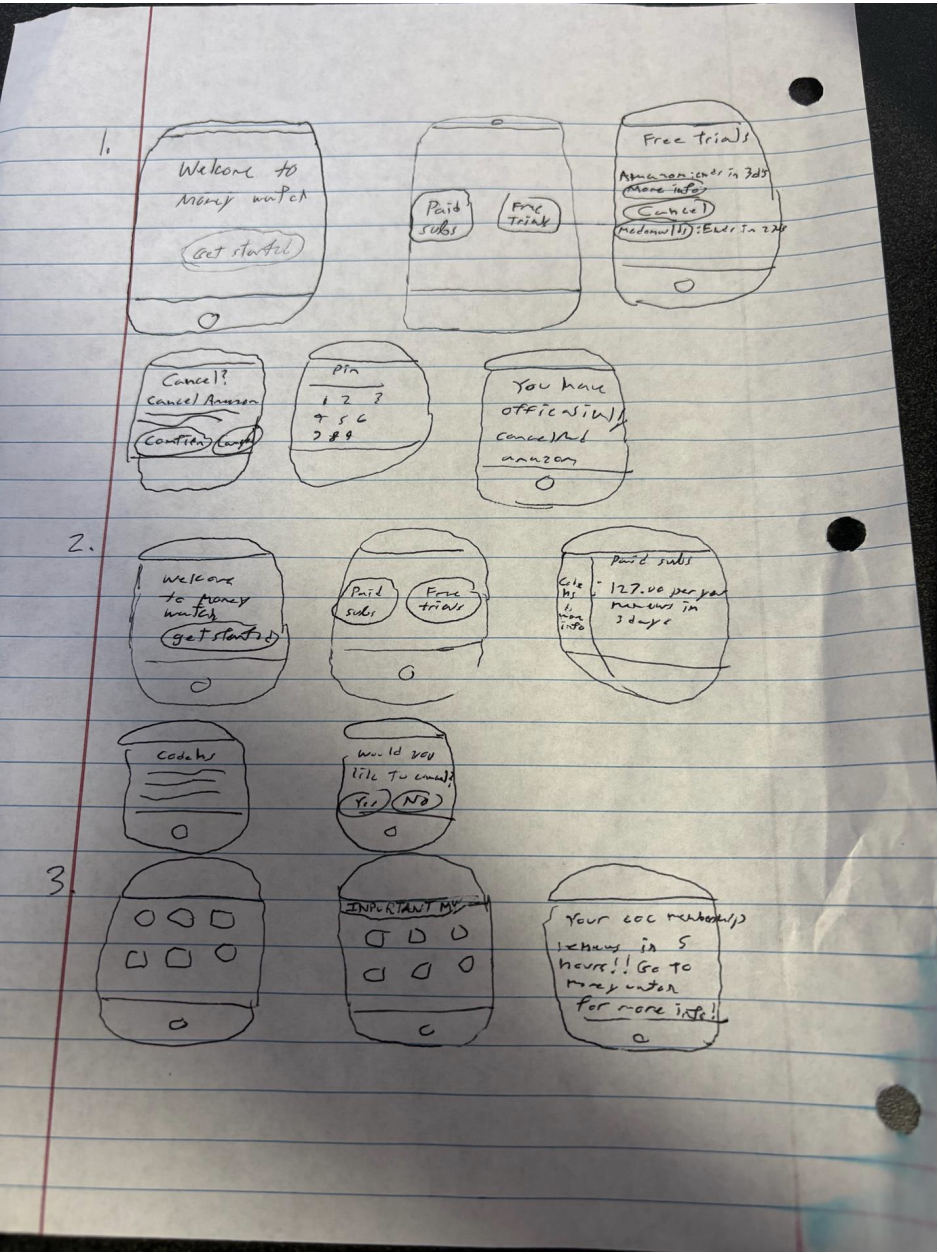 1.
Welcome to
Money watch
Get started
Paid
subs
Free
Trials
Free Trials
Amazon: ends in 3ds
More info
Cancel
Mcdonalds: Ends in 22ds
Cancel?
Cancel Amazon
Confirm
Pin
1 2 3
4 5 6
7 8 9
You have
officially
cancelled
amazon
2.
Welcome
to money
watch
get started
Paid
subs
Free
trials
Paid subs
Code
HS
more
info
: 127.00 per year
renews in
3 days
CodeHS
Would you
like to cancel?
Yes
No
3.
IMPORTANT MSG
Your COC membership
renews in 5
hours!! Go to
money watch
for more info!